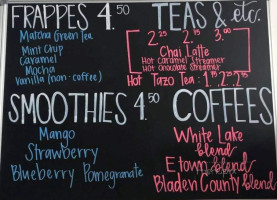 FRAPPES 4.50
Matcha Green Tea
Mint Chip
Caramel
Mocha
Vanilla (non-coffee)
TEAS & etc.
2.25 2.75 3.00
Chai Latte
Hot Caramel Steamer
Hot Chocolate Steamer
Hot Tazo Tea:
SMOOTHIES 4.50
Mango
Strawberry
Blueberry Pomegranate
COFFEES
White Lake
blend
Etown blend
Bladen County blend